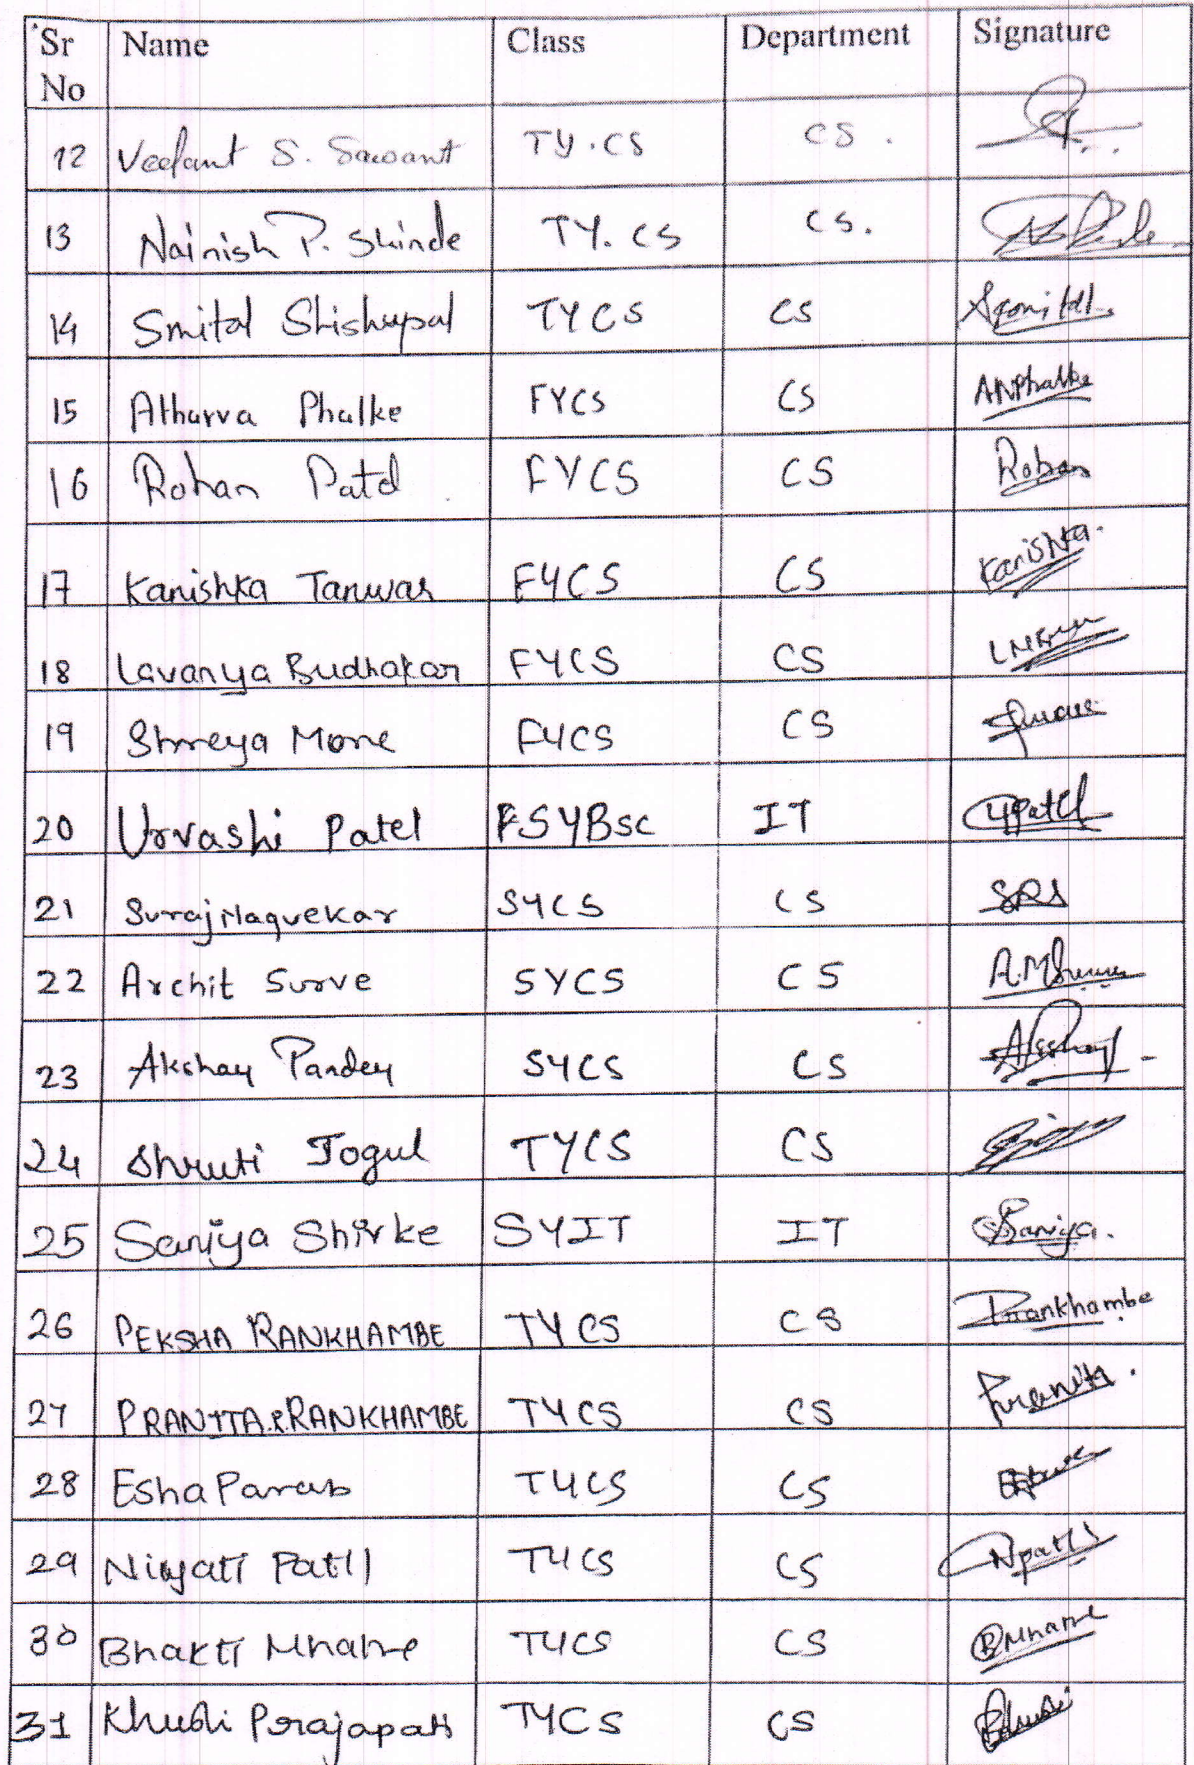 Sr No Name Class Department Signature
12 Vedant S. Sawant TY.CS CS.
13 Nainish P. Shinde TY.CS CS.
14 Smital Shishupal TYCS CS Ssmital.
15 Atharva Phalke FYCS CS ANPhalke
16 Rohan Patel FYCS CS Rohan
17 Kanishka Tanwar FYCS CS Kanishka.
18 Lavanya Budhakar FYCS CS
19 Shreya More FYCS CS
20 Urvashi Patel FSYBsc IT UPatel
21 Suraj Nagvekar SYCS CS SRS
22 Archit Surve SYCS CS A.MSurve
23 Akshay Pandey SYCS CS Akshay
24 Shruti Jogul TYCS CS
25 Saniya Shirke SYIT IT Saniya.
26 PEKSHA RANKHAMBE TYCS CS Prankhambe
27 PRANITA.R.RANKHAMBE TYCS CS Pranita.
28 Esha Parab TYCS CS
29 Niyati Patil TYCS CS Npatil
30 Bhakti Mhatre TYCS CS BMhatre
31 Khushi Prajapati TYCS CS Khushi